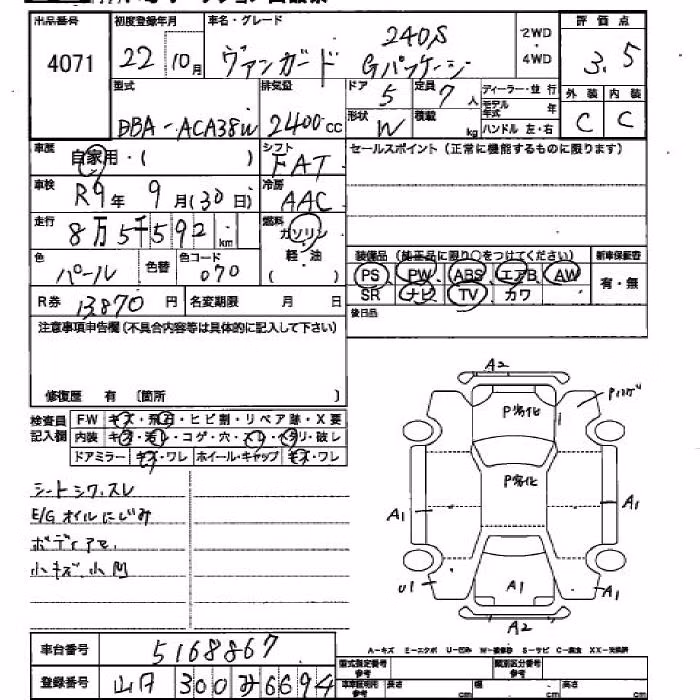 出品番号 初度登録年月 車名・グレード 評価点
4071 22年10月 ヴァンガード 240S Gパッケージ 2WD・4WD 3.5
型式 排気量 ドア 定員 ディーラー・並行 外装 内装
DBA-ACA38W 2400cc 5 7人 モデル年式 年 C C
形状 W 積載 kg ハンドル 左・右
車歴 自家用・( ) シフト FAT セールスポイント(正常に機能するものに限ります)
車検 R9年9月(30日) 冷房 AAC
走行 8万5千592km 燃料 ガソリン 軽・油 ( )
色 パール 色替 色コード 070
装備品(純正品に限り○をつけてください) 新車保証書
PS PW ABS エアB AW 有・無
SR ナビ TV カワ
R券 13870円 名変期限 月 日 後日品
注意事項申告欄(不具合内容等は具体的に記入して下さい)
修復歴 有 〔箇所 〕
検査員記入欄 FW キズ・飛石・ヒビ割・リペア跡・X要
内装 キズ・汚レ・コゲ・穴・スレ・ヘタリ・破レ
ドアミラー キズ・ワレ ホイール・キャップ キズ・ワレ
シートシワ、スレ
E/Gオイルにじみ
ボディアセ、
小キズ、小凹
A2
P劣化 Pハゲ
P劣化
A1 A1
U1 A1 A1
A2
A-キズ E-エクボ U-凹み W-補修跡 S-サビ C-腐食 XX-交換済
車台番号 5168867
型式指定番号 参考 類別区分番号 参考
登録番号 300み6694
長さ cm 幅 cm 高さ cm